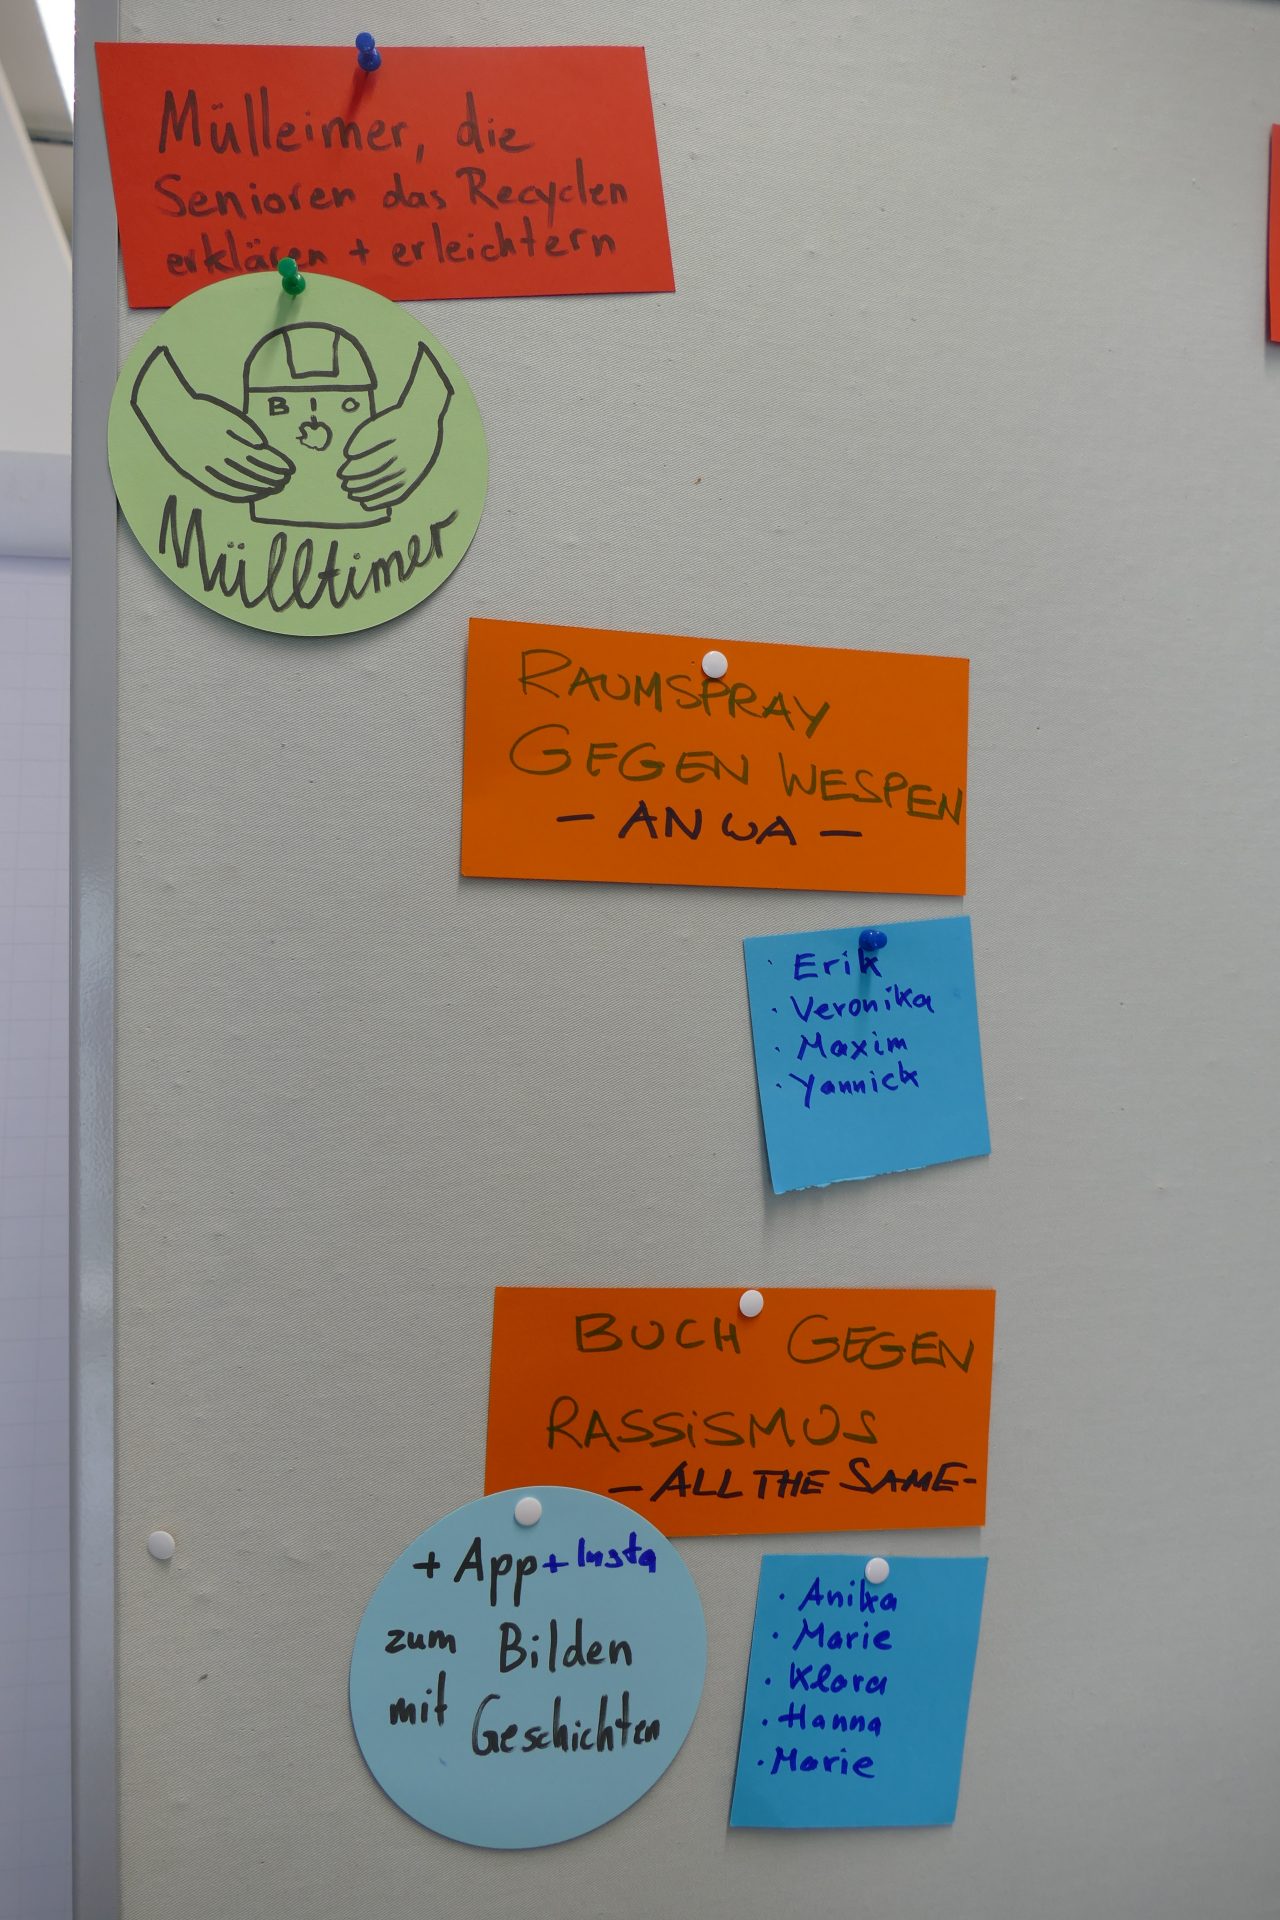 Mülleimer, die
Senioren das Recyclen
erklären + erleichtern
BIO
Mülltimer
RAUMSPRAY
GEGEN WESPEN
- ANWA -
· Erik
· Veronika
· Maxim
· Yannick
BUCH GEGEN
RASSiSMUS
- ALL THE SAME -
+ App + Insta
zum Bilden
mit Geschichten
· Anika
· Marie
· Klara
· Hanna
· Marie